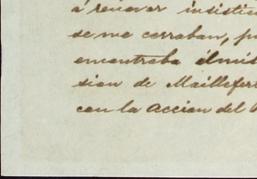 á renovar insistien
se me cerraban, pu
encontraba el mis
sion de Maillefer
con la accion del